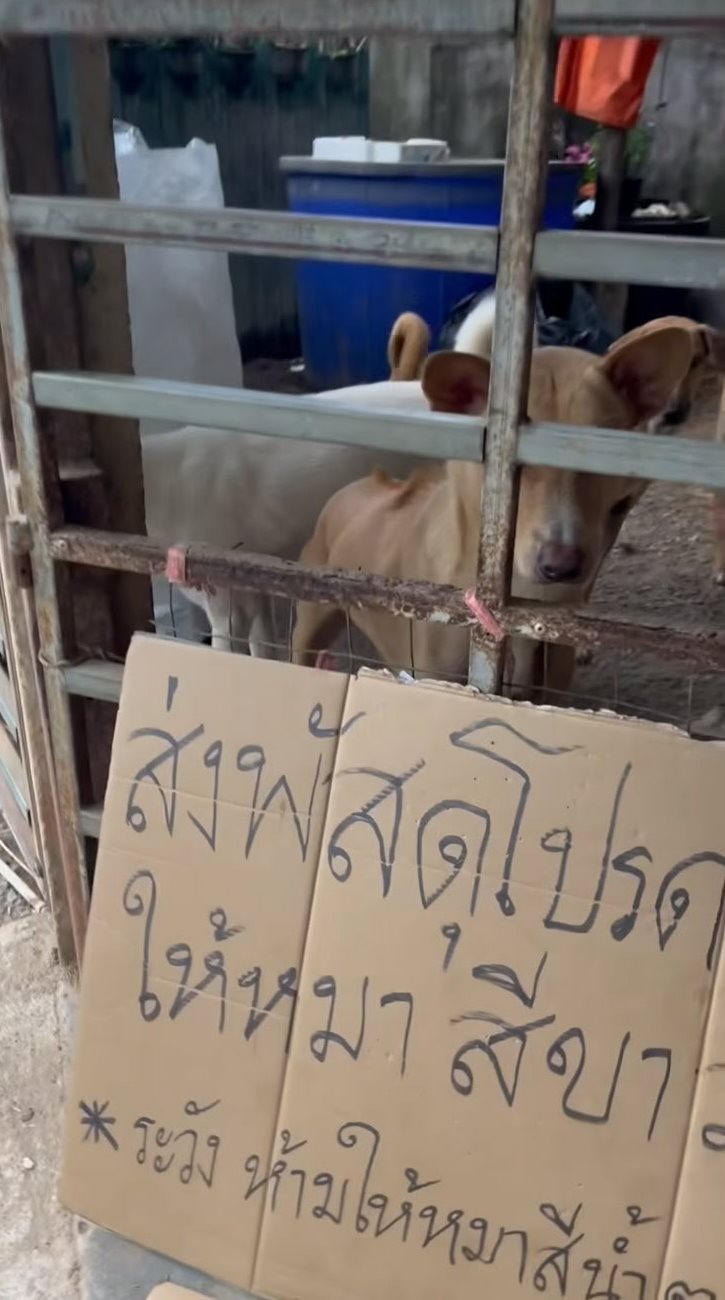 ส่งพัสดุโปรด
ให้หมา สีขา
* ระวัง ห้ามให้หมาสีน้ำ